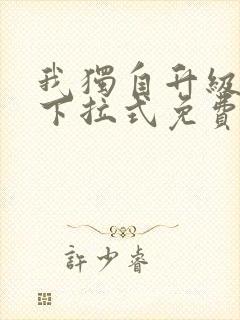 我獨自升級
下拉式免費
許少睿